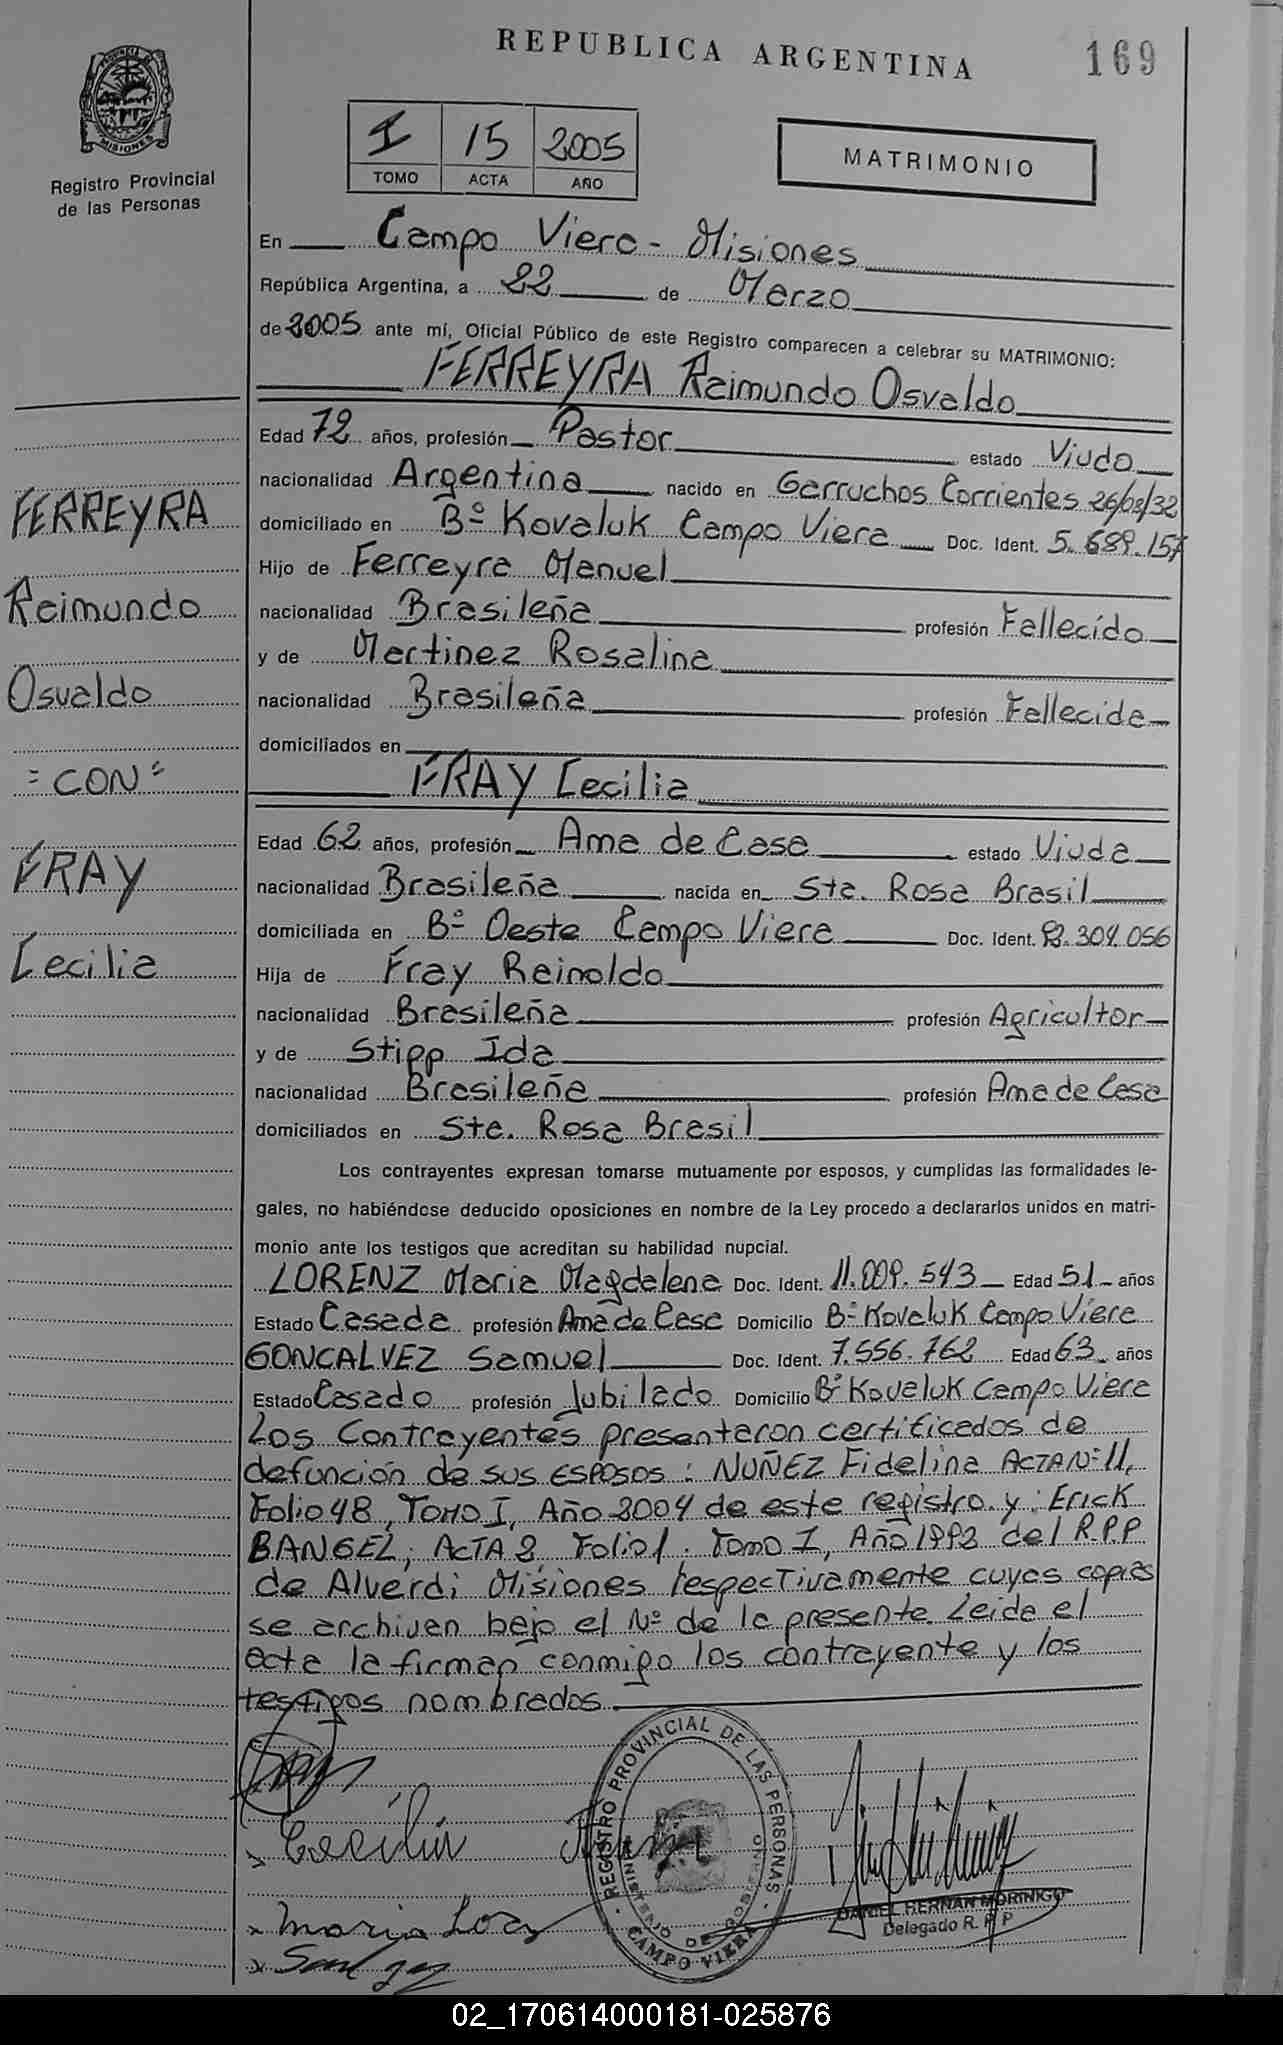 REPUBLICA ARGENTINA
169
PROVINCIA DE MISIONES
Registro Provincial
de las Personas
I 15 2005
TOMO ACTA AÑO
MATRIMONIO
En Campo Viera - Misiones
República Argentina, a 22 de Marzo
de 2005 ante mí, Oficial Público de este Registro comparecen a celebrar su MATRIMONIO:
FERREYRA Raimundo Osvaldo
Edad 72 años, profesión Pastor estado Viudo
nacionalidad Argentina nacido en Garruchos Corrientes 26/08/32
domiciliado en Bº Kovaluk Campo Viera Doc. Ident. 5.689.157
Hijo de Ferreyra Manuel
nacionalidad Brasileña profesión Fallecido
y de Martinez Rosalina
nacionalidad Brasileña profesión Fallecida
domiciliados en
FRAY Cecilia
Edad 62 años, profesión Ama de Casa estado Viuda
nacionalidad Brasileña nacida en Sta. Rosa Brasil
domiciliada en Bº Oeste Campo Viera Doc. Ident. 93.304.056
Hija de Fray Reinoldo
nacionalidad Brasileña profesión Agricultor
y de Stipp Ida
nacionalidad Brasileña profesión Ama de Casa
domiciliados en Sta. Rosa Brasil
Los contrayentes expresan tomarse mutuamente por esposos, y cumplidas las formalidades le-
gales, no habiéndose deducido oposiciones en nombre de la Ley procedo a declararlos unidos en matri-
monio ante los testigos que acreditan su habilidad nupcial.
LORENZ Maria Magdalena Doc. Ident. 11.009.543 Edad 51 años
Estado Casada profesión Ama de Casa Domicilio Bº Kovaluk Campo Viera
GONCALVEZ Samuel Doc. Ident. 7.556.762 Edad 63 años
Estado Casado profesión Jubilado Domicilio Bº Kovaluk Campo Viera
Los Contrayentes presentaron certificados de
defunción de sus ESPOSOS: NUÑEZ Fidelina ACTA Nº 11,
Folio 48, TOMO I, Año 2004 de este registro y: Erick
BANGEL, ACTA 2, Folio 1. Tomo I, Año 1992 del R.P.P
de Alverdi Misiones respectivamente cuyas copias
se archivan bajo el Nº de la presente Leida el
acta la firman conmigo los contrayente y los
testigos nombrados.
FERREYRA
Raimundo
Osvaldo
=CON=
FRAY
Cecilia
Cecilia
Maria
REGISTRO PROVINCIAL DE LAS PERSONAS
MINISTERIO DE GOBIERNO
CAMPO VIERA
DANIEL HERNAN MORINIGO
Delegado R. P P
02_170614000181-025876